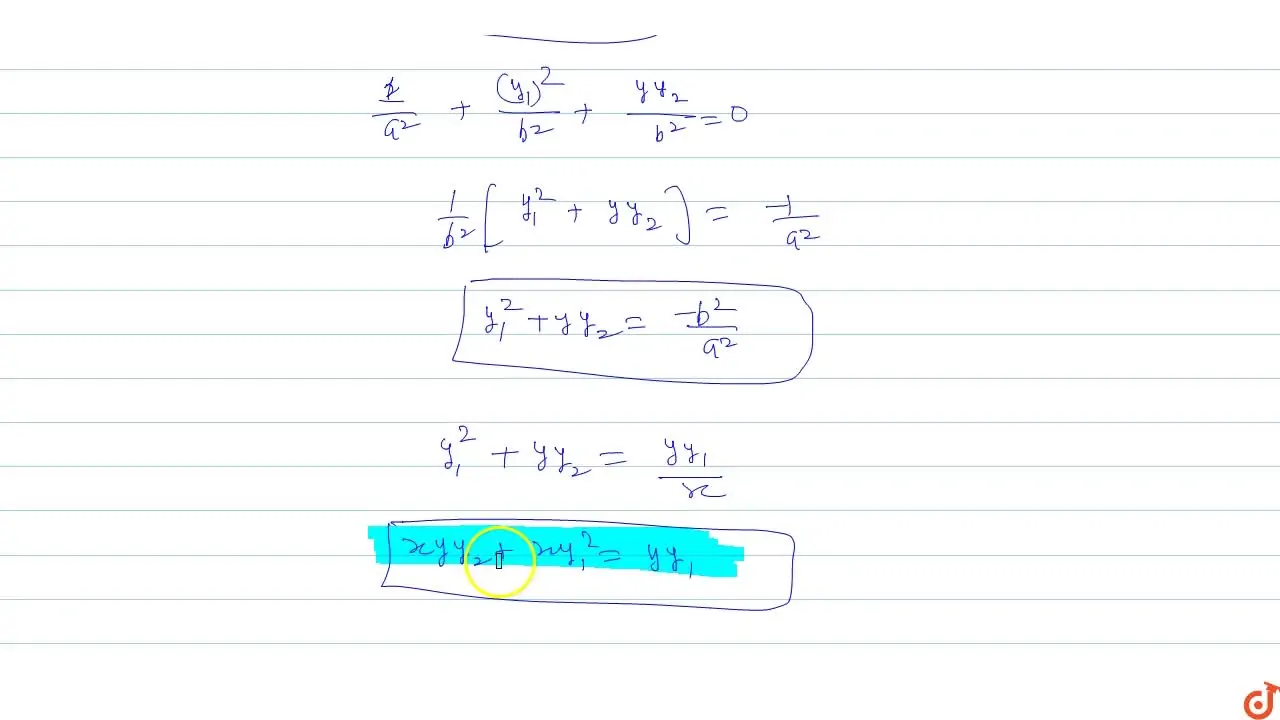 1/a² + (y₁)²/b² + yy₂/b² = 0
1/b² [ y₁² + yy₂ ] = -1/a²
y₁² + yy₂ = -b²/a²
y₁² + yy₂ = yy₁/x
xyy₂ + xy₁² = yy₁